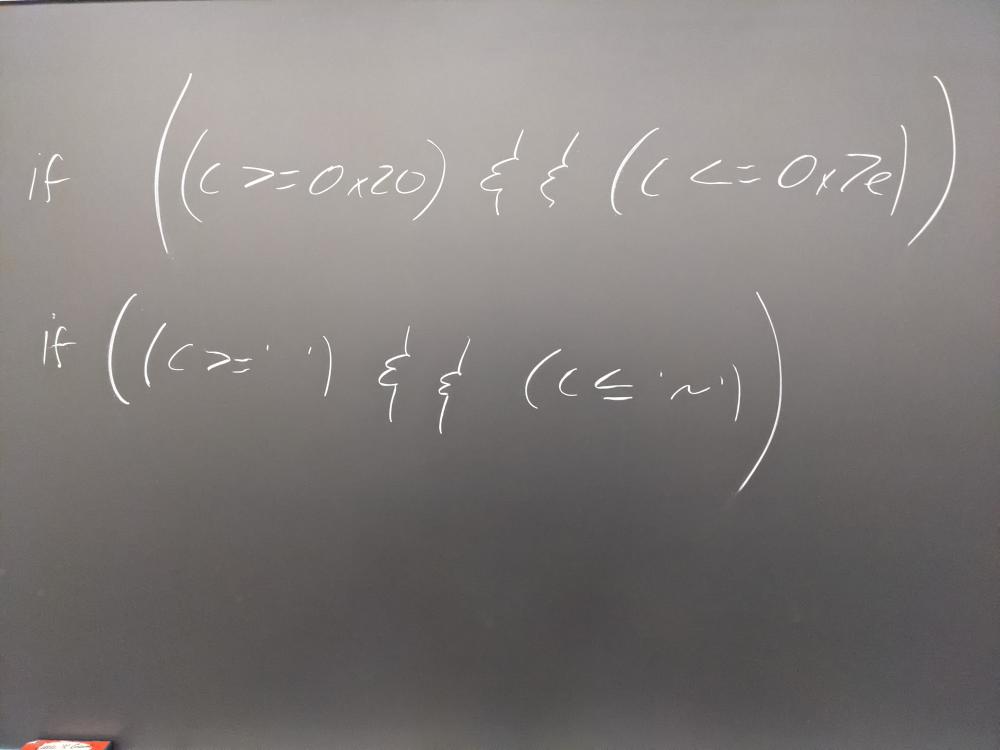 if ((c >= 0x20) && (c <= 0x7e))
if ((c >= ' ') && (c ≤ '~'))